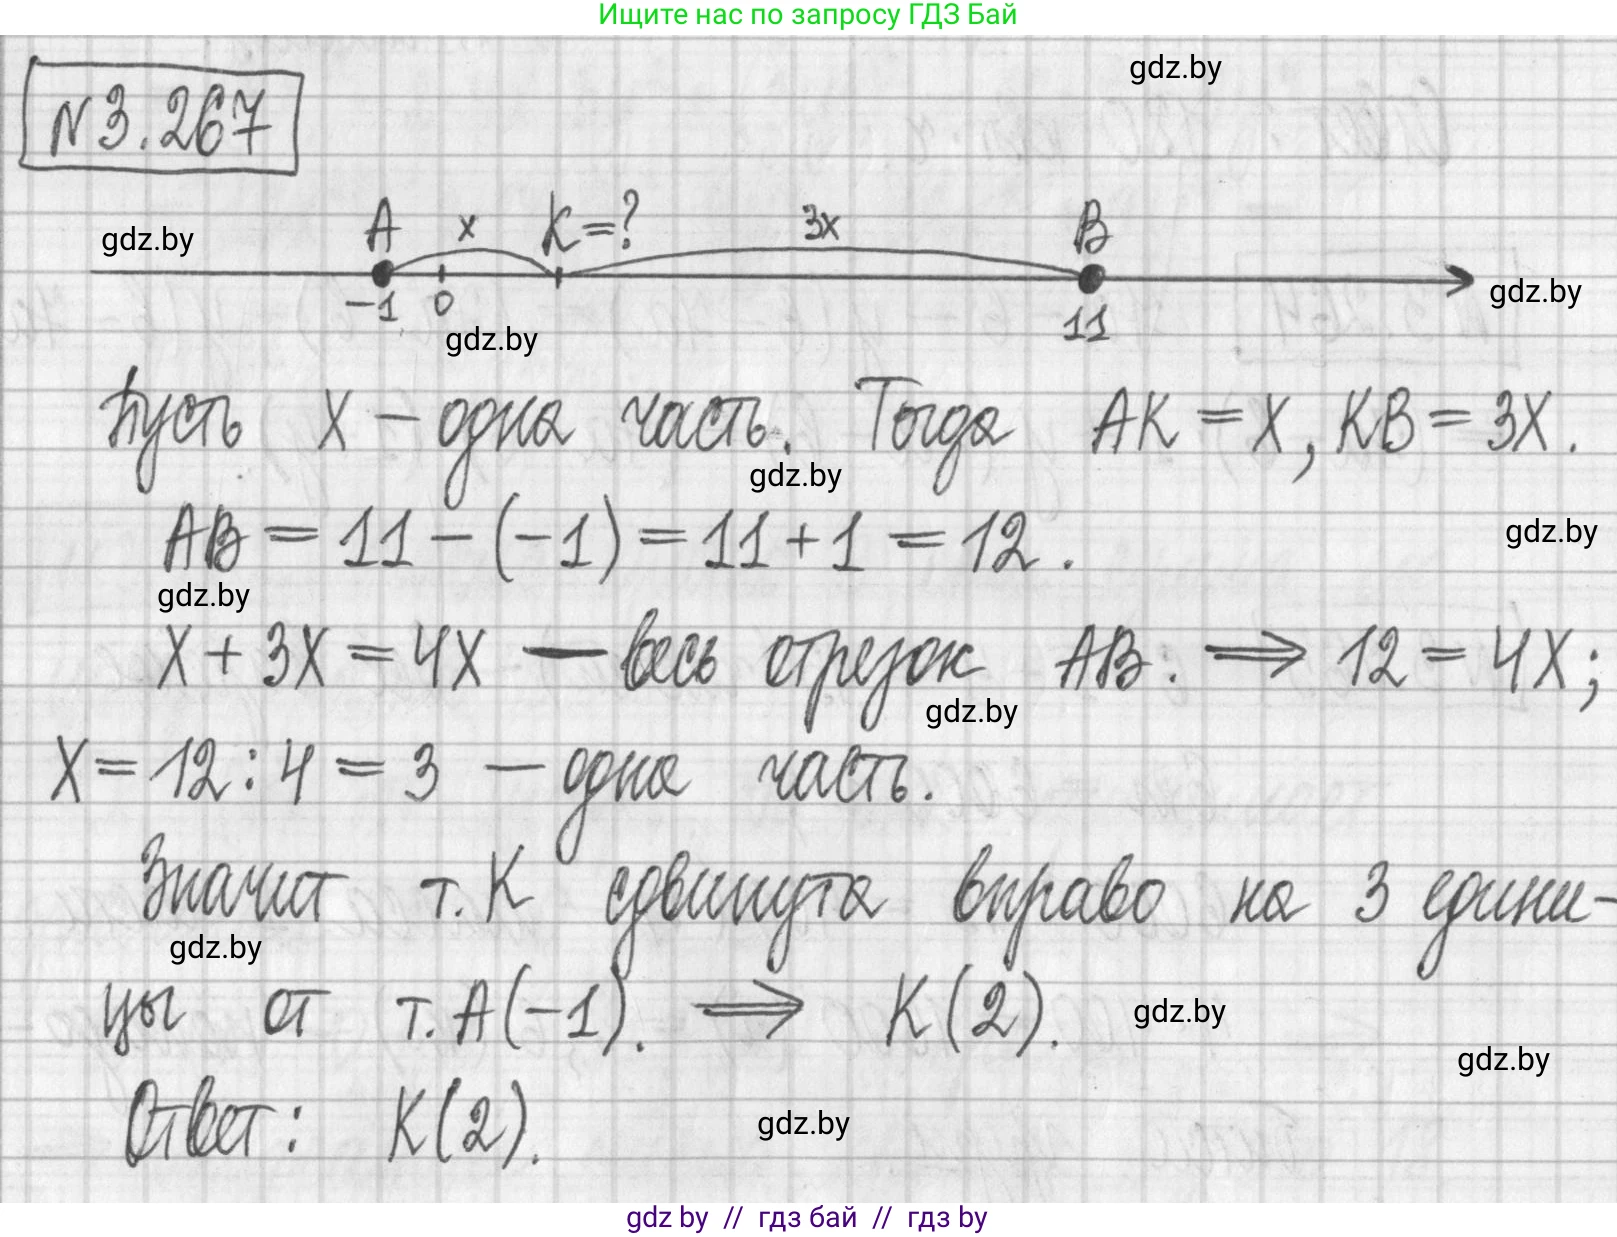 Ищите нас по запросу ГДЗ Бай
gdz.by
N 3.267
gdz.by
A x K=? 3x B
-1 0 11
gdz.by
gdz.by
Пусть x – одна часть. Тогда AK = x, KB = 3x.
gdz.by
AB = 11 - (-1) = 11 + 1 = 12.
gdz.by
gdz.by
x + 3x = 4x – весь отрезок AB. ⇒ 12 = 4x;
gdz.by
x = 12 : 4 = 3 – одна часть.
Значит т. K сдвинута вправо на 3 едини-
gdz.by
цы от т. A(-1). ⇒ K(2).
gdz.by
gdz.by
Ответ: K(2).
gdz.by
gdz by // гдз бай // гдз by